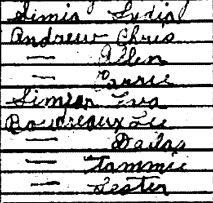 Simia Lydia
Andrew Chris
— Allen
—
Simiar Eva
Boudreaux Lee
— Dallas
— Tammie
— Lester